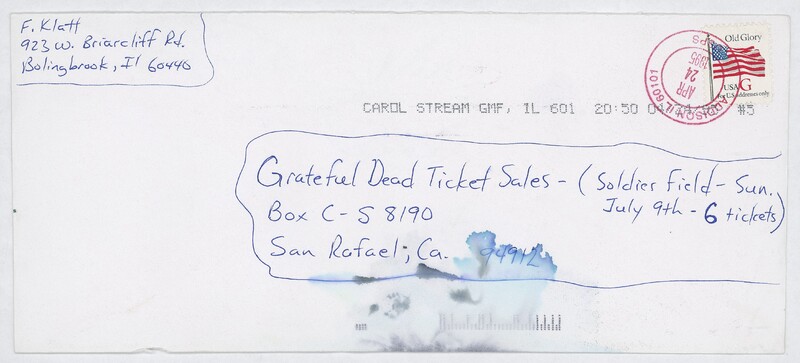 F. Klatt
923 W. Briarcliff Rd.
Bolingbrook, Il 60440
Old Glory
USA G
For U.S. addresses only
ADDISON IL 60101
APR
24
1995
USPS
CAROL STREAM GMF, IL 601 20:50 04/24/95 #3
Grateful Dead Ticket Sales - (Soldier Field - Sun.
July 9th - 6 tickets)
Box C-S 8190
San Rafael, Ca. 94912